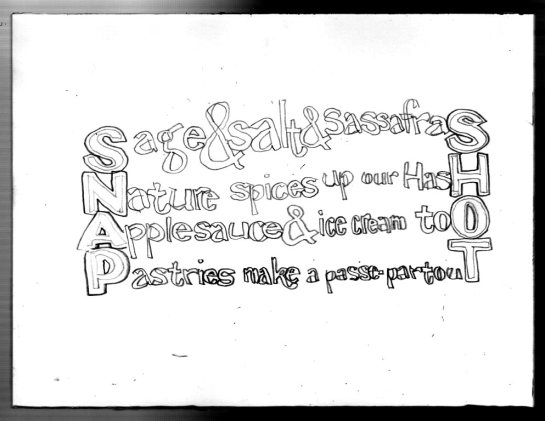 Sage&salt&sassafraS
Nature spices up our HasH
Applesauce&ice cream toO
Pastries make a passe-partouT